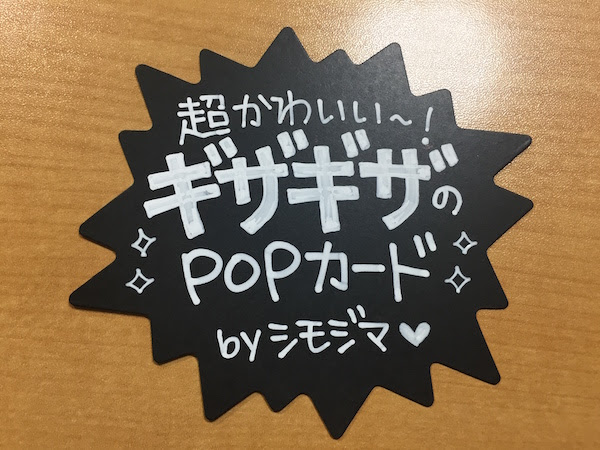 超かわいい~!
ギザギザの
POPカード
byシモジマ♥